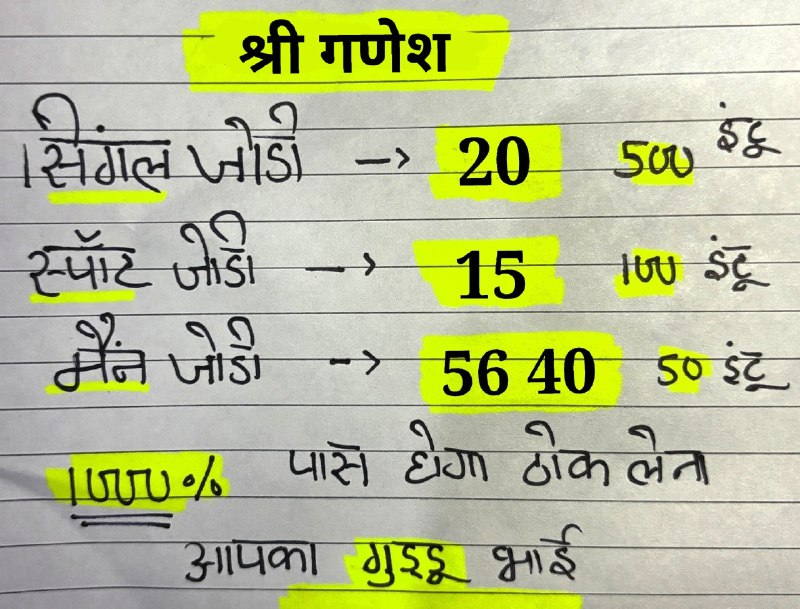 श्री गणेश
सिंगल जोडी -> 20 500 इंटू
स्पॉट जोडी -> 15 100 इंटू
मैंन जोडी -> 56 40 50 इंटू
1000% पास होगा ठोक लेना
आपका गुड्डू भाई